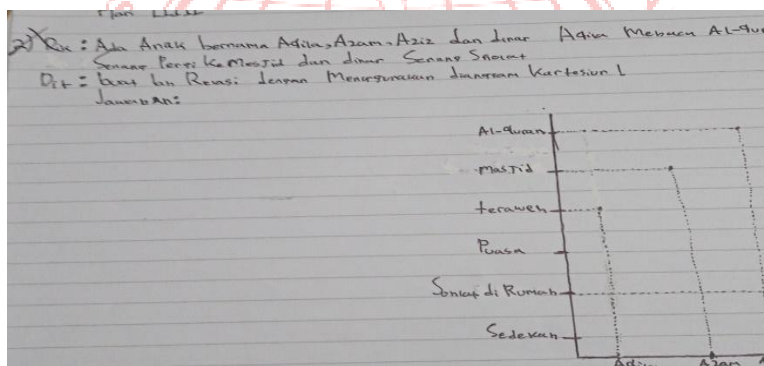 2) Dik : Ada Anak bernama Adila, Azam, Aziz dan dinar Adila Membaca Al-Qu
Senang Pergi Ke Mesjid dan dinar Senang
Dit : buat lah Relasi dengan Menggunakan diagram Kartesius !
Jawaban :
Al-Quran
masjid
teraweh
Puasa
di Rumah
Sedekah
Azam